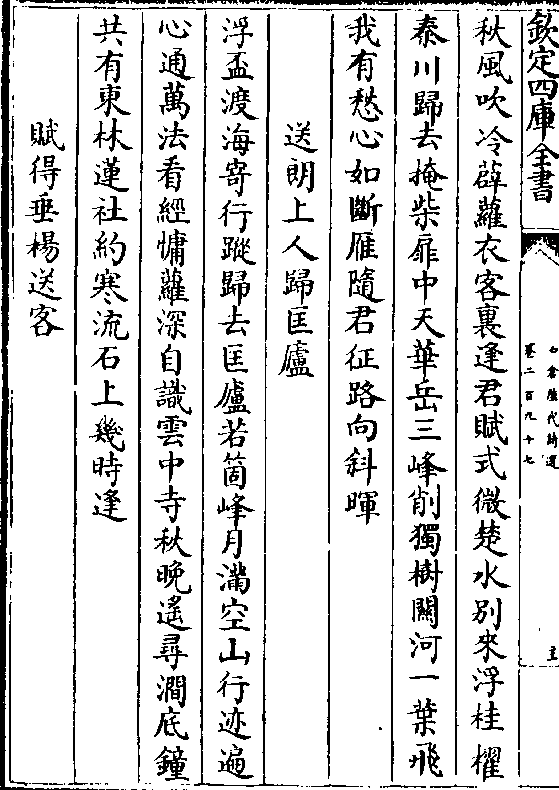 欽定四庫全書
卷二百九十七
秋風吹冷薜蘿衣客裏逢君賦式微楚水別來浮桂櫂
秦川歸去掩柴扉中天華岳三峰削獨樹關河一葉飛
我有愁心如斷雁隨君征路向斜暉
送朗上人歸匡廬
浮盃渡海寄行蹤歸去匡廬若箇峰月滿空山行迹遍
心通萬法看經慵蘿深自識雲中寺秋晚遙尋澗底鐘
共有東林蓮社約寒流石上幾時逢
賦得垂楊送客